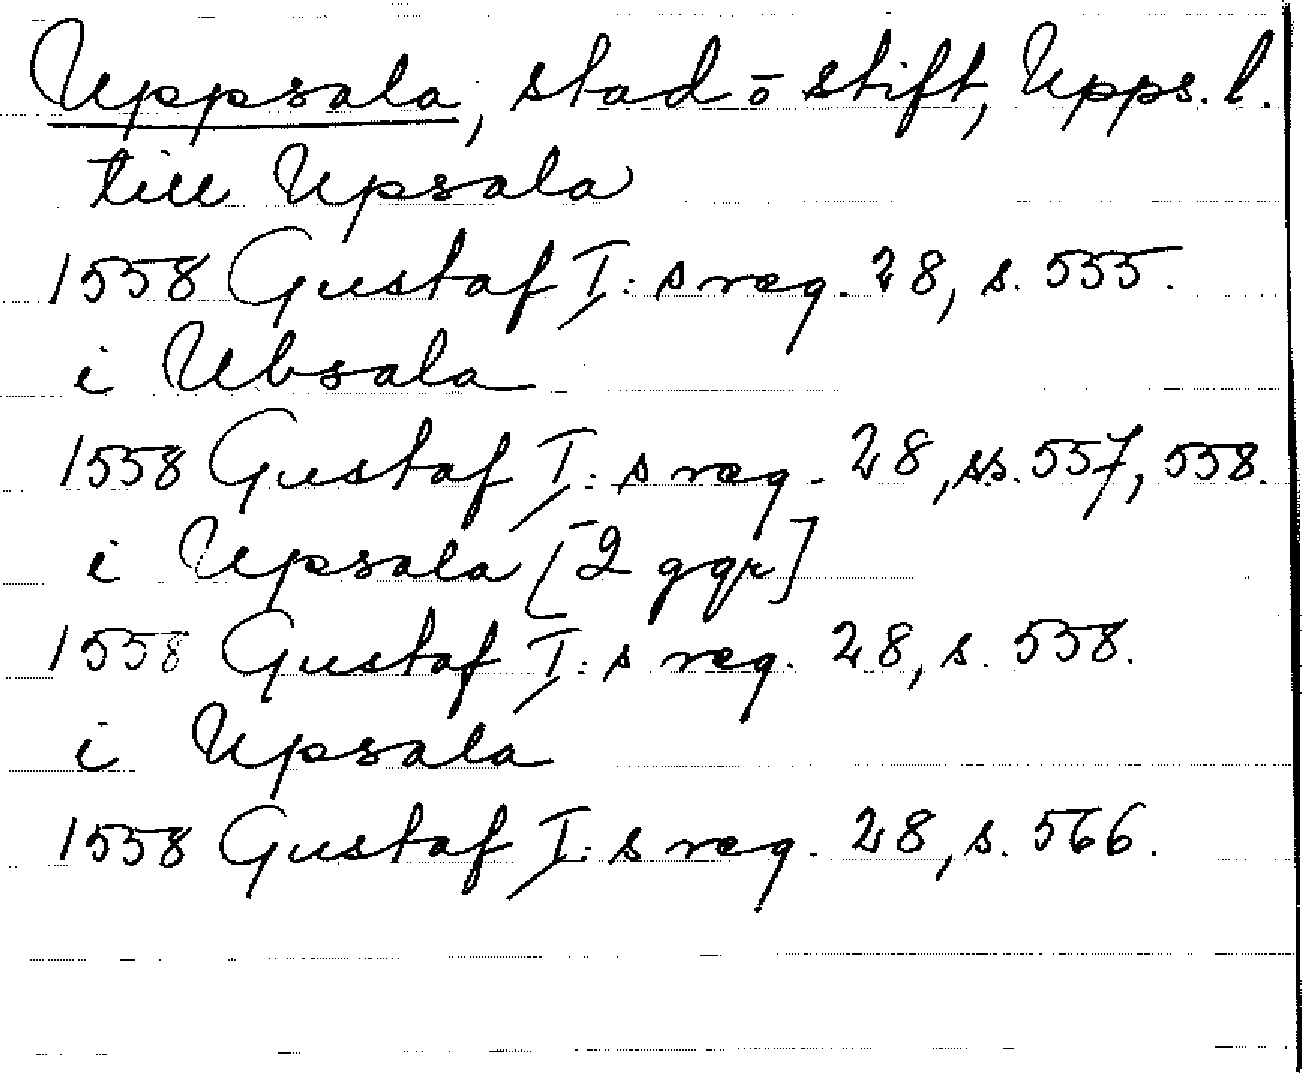 Uppsala, stad ō stift, Upps. l.
till Upsala
1558 Gustaf I:s reg. 28, s. 555.
i Ubsala
1558 Gustaf I:s reg. 28, ss. 557, 558.
i Upsala [2 ggr]
1558 Gustaf I:s reg. 28, s. 558.
i Upsala
1558 Gustaf I:s reg. 28, s. 566.